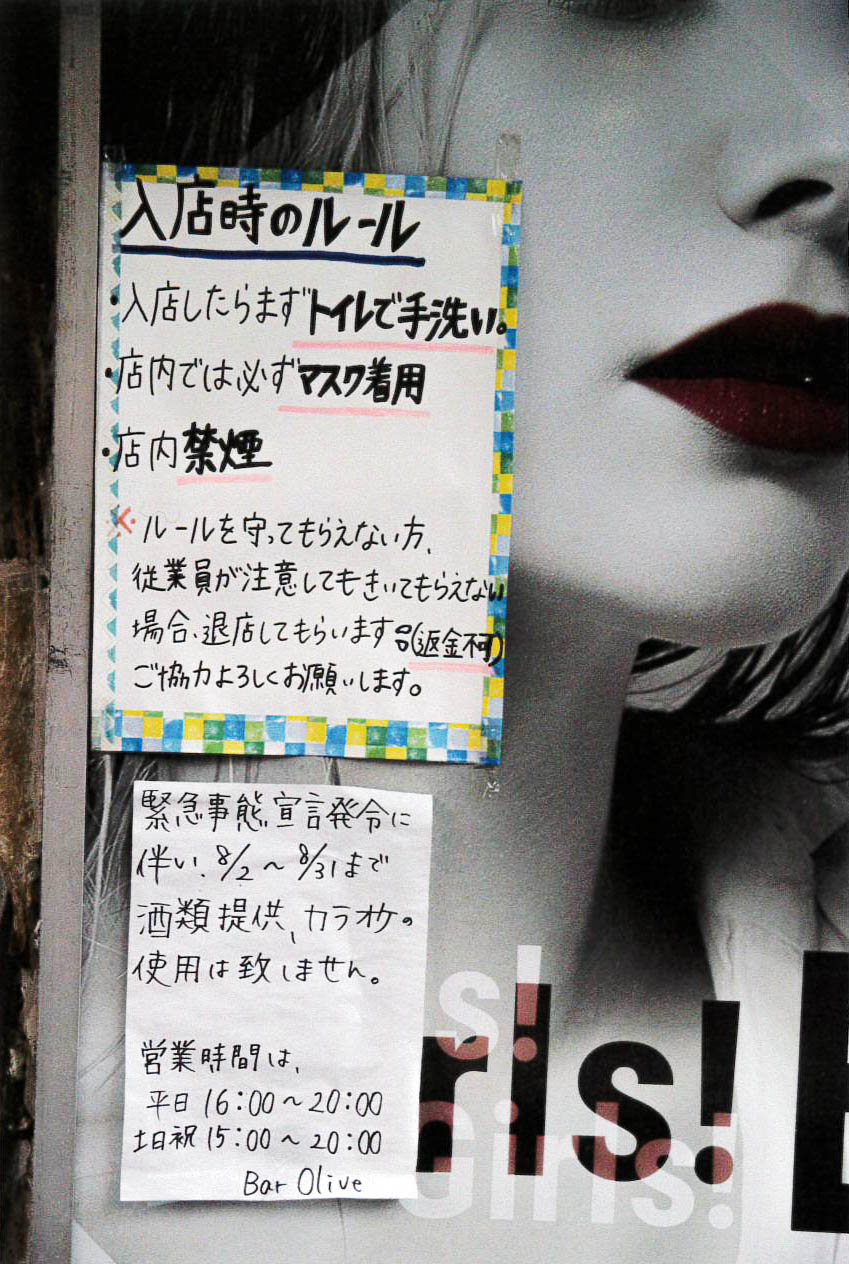 入店時のルール
・入店したらまずトイレで手洗い。
・店内では必ずマスク着用
・店内禁煙
※ルールを守ってもらえない方、
従業員が注意してもきいてもらえない
場合、退店してもらいます。(返金不可)
ご協力よろしくお願いします。
緊急事態宣言発令に
伴い、8/2～8/31まで
酒類提供、カラオケの
使用は致しません。
営業時間は、
平日 16:00～20:00
土日祝 15:00～20:00
Bar Olive
s!
rls!
Girls!